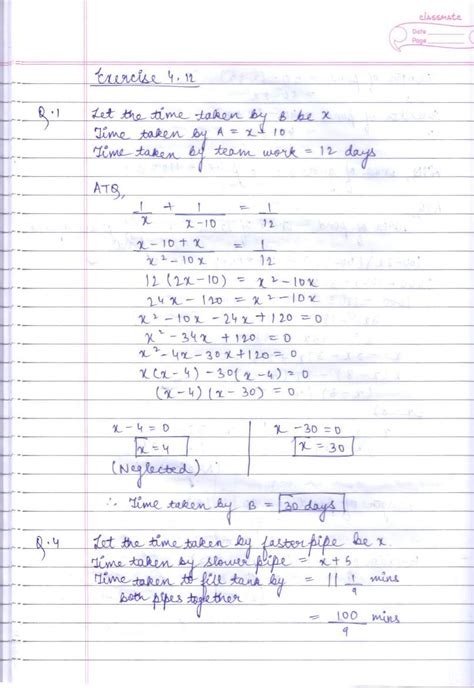 classmate
Date
Page
Exercise 4.12
Q.1 Let the time taken by B be x
Time taken by A = x - 10
Time taken by team work = 12 days
ATQ,
1/x + 1/(x-10) = 1/12
(x-10+x)/(x²-10x) = 1/12
12(2x-10) = x²-10x
24x - 120 = x²-10x
x²-10x-24x+120=0
x²-34x+120=0
x²-4x-30x+120=0
x(x-4)-30(x-4)=0
(x-4)(x-30)=0
x-4=0 x-30=0
x=4 x=30
(Neglected)
∴ Time taken by B = 30 days
Q.4 Let the time taken by faster pipe be x
Time taken by slower pipe = x+5
Time taken to fill tank by = 11 1/9 mins
both pipes together
= 100/9 mins